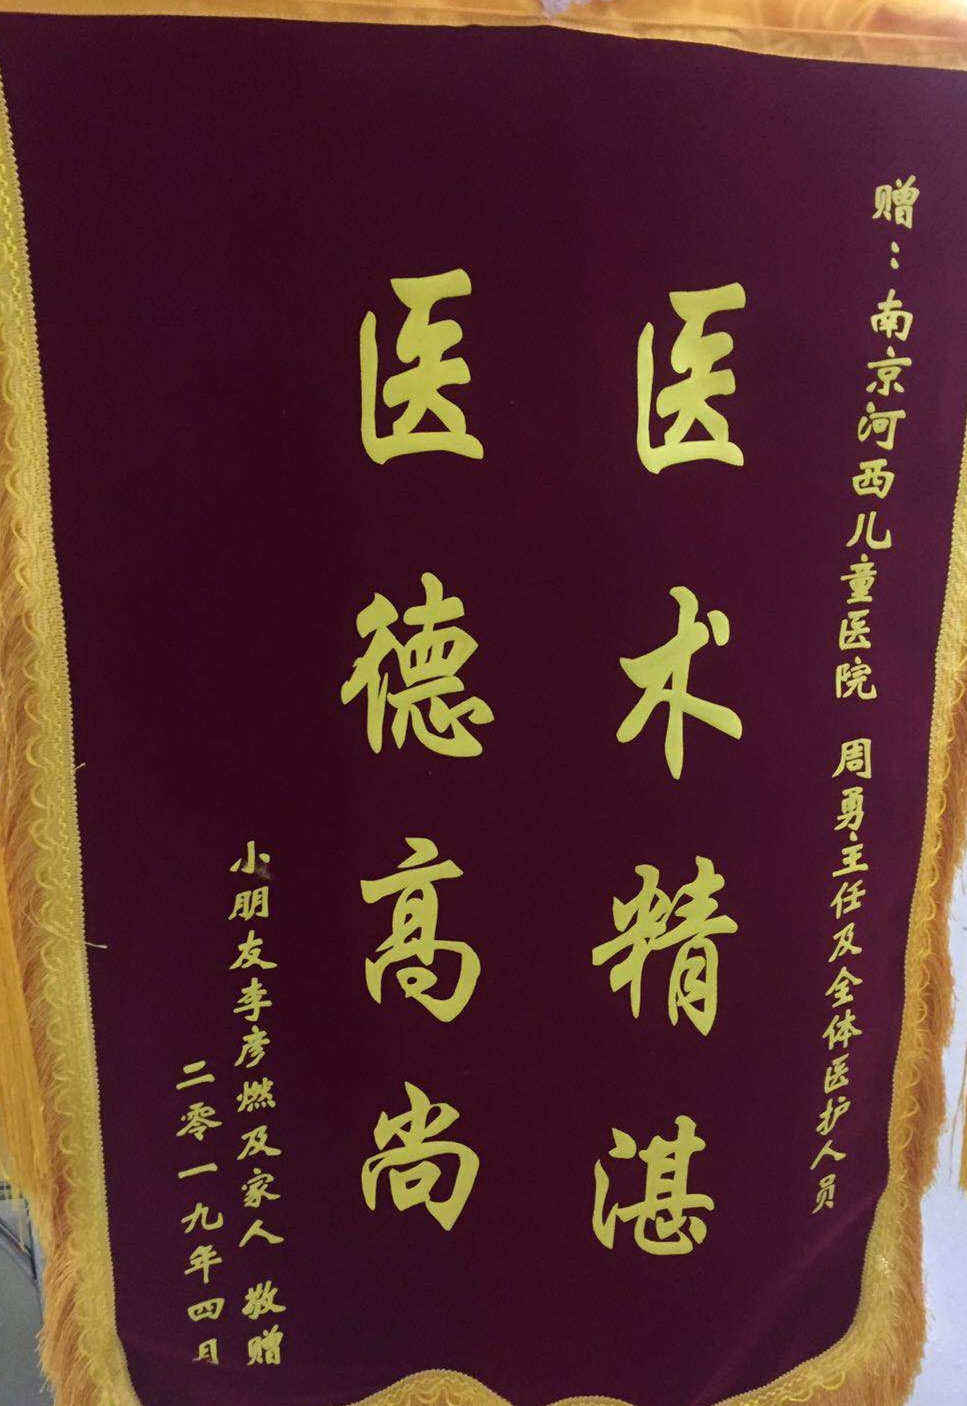 赠：南京河西儿童医院 周勇主任及全体医护人员
医术精湛
医德高尚
小朋友李彦燃及家人 敬赠
二零一九年四月